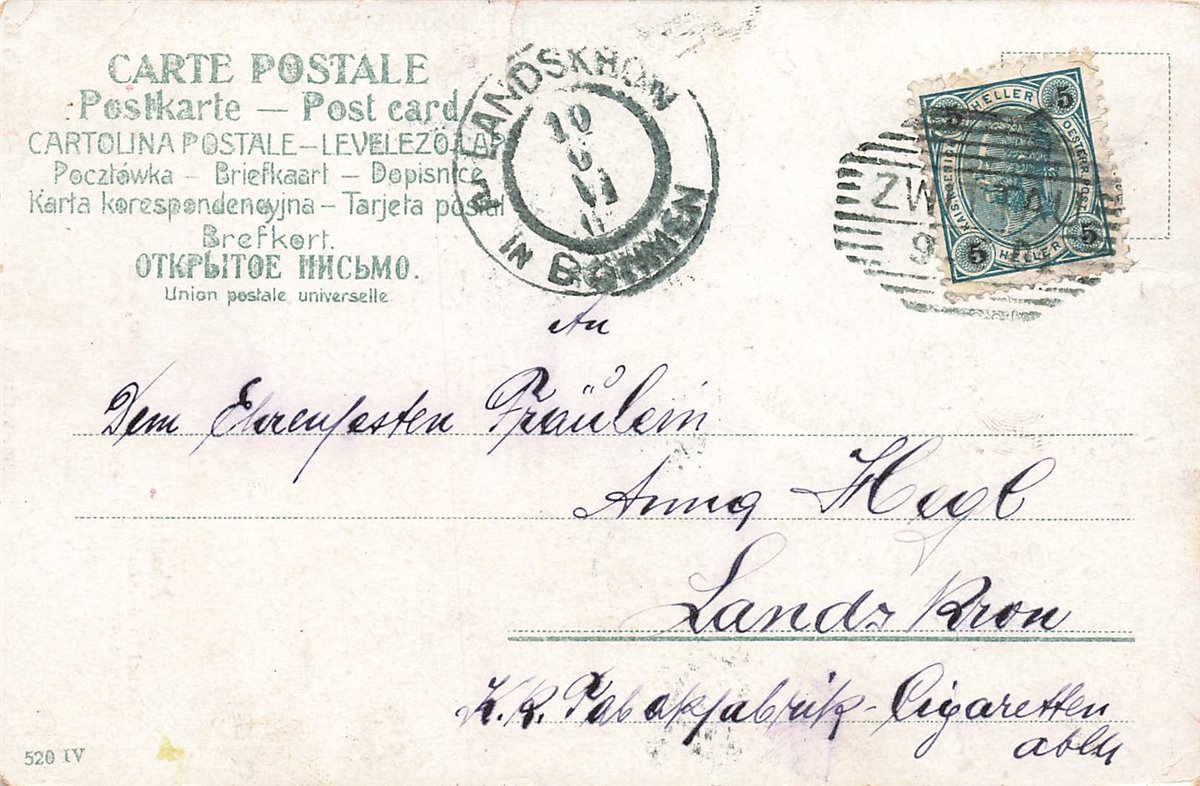 CARTE POSTALE
Postkarte — Post card
CARTOLINA POSTALE – LEVELEZŐ-LAP
Pocztówka – Briefkaart – Dopisnice
Karta korespondencyjna – Tarjeta postal
Brefkort.
ОТКРЫТОЕ ПИСЬМО.
Union postale universelle
LANDSKRON
IN BÖHMEN
10
5 HELLER 5
KAIS. KÖNIGL. OESTERR. POST
5 HELLER 5
ZWITTAU
9
An
Dem Ehrenfesten Fräulein
Anna Hegl
Landskron
K.k. Tabakfabrik-Cigaretten
520 IV